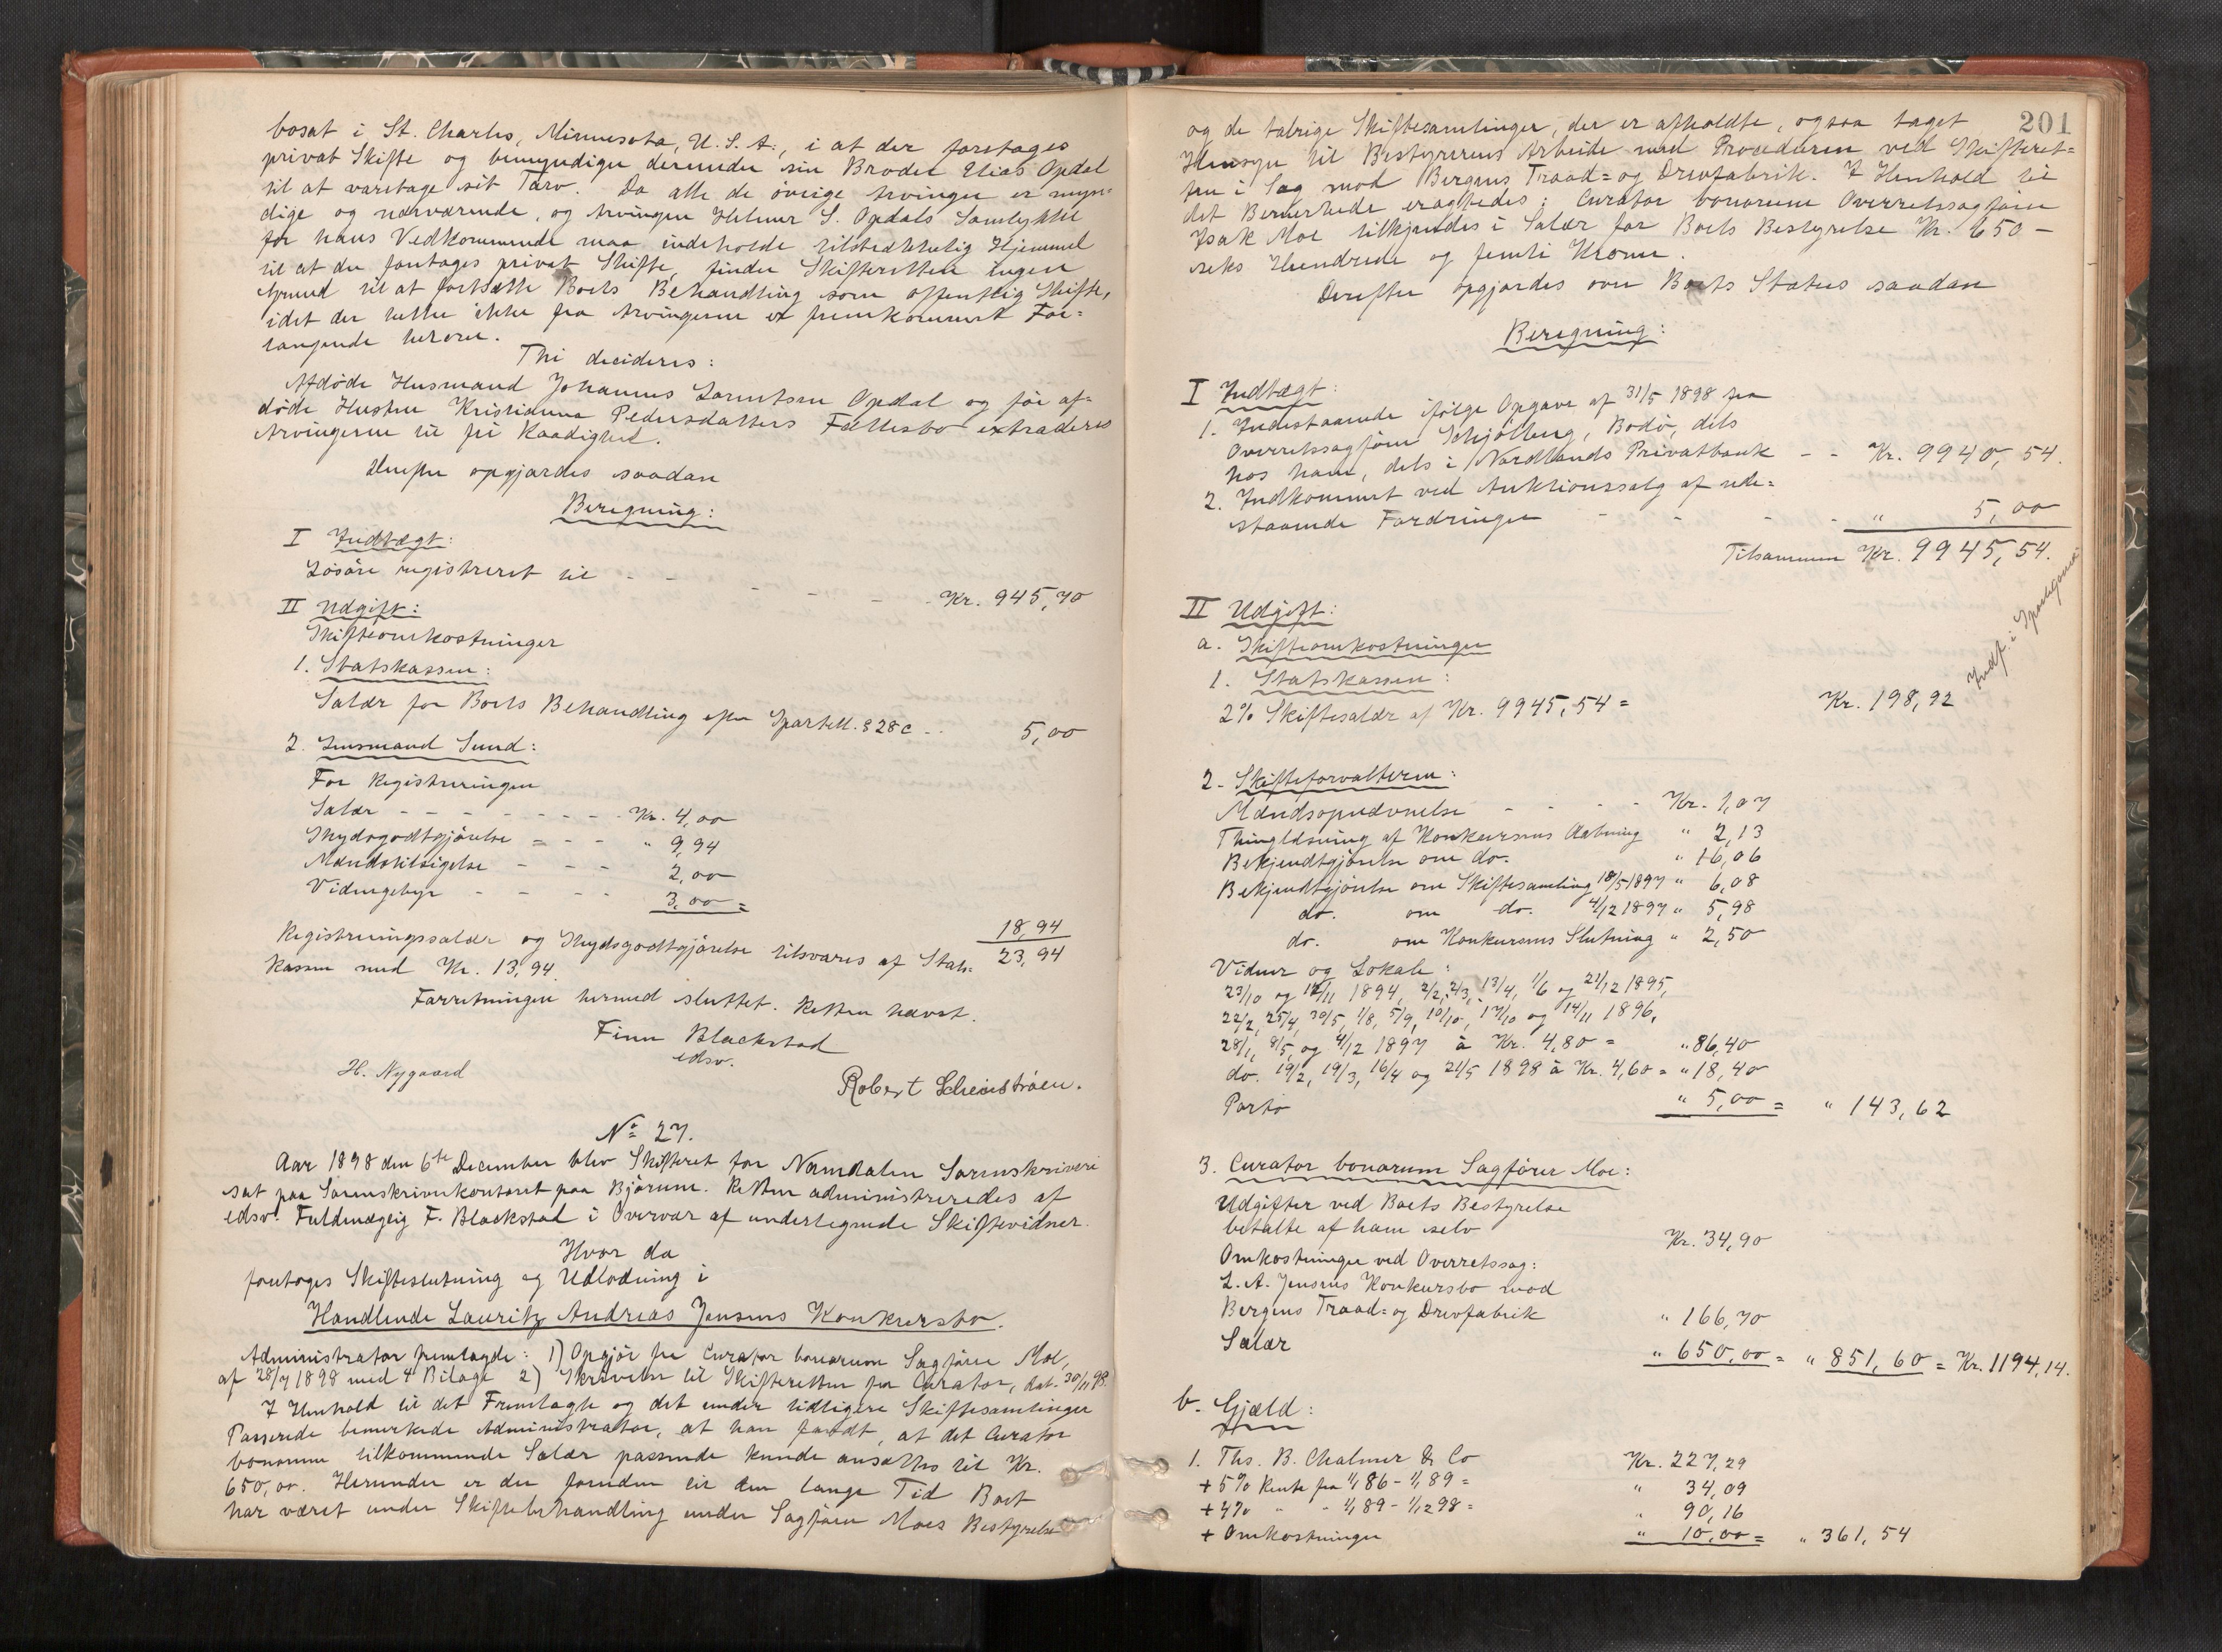 bosat i St. Charles, Minnesota, U. S. A., i at der foretages
privat Skifte og bemyndiger derunder sin Broder Elias Opdal
til at varetage sit Tarv. Da alle de övrige Arvinger er myn-
dige og nærværende, og Arvingen Helmer S. Opdals Samtykke
for hans Vedkommende maa indeholde tilstrækkelig Hjemmel
til at der foretages privat Skifte, finder Skifteretten ingen
Grund til at fortsætte Boets Behandling som offentlig Skifte,
idet der heller ikke fra Arvingerne er fremkommet For-
langende herom.
Thi decideres:
Afdöde Husmand Johannes Lorntsen Opdal og för af-
döde Hustru Kristianna Pedersdatters Fællesbo extraderes
Arvingerne til fri Raadighed.
Derefter opgjordes saadan
Beregning:
I Indtægt:
Lösöre registreret til - - - - - - Kr. 945,70
II Udgift:
Skifteomkostninger
1. Statskassen:
Salær for Boets Behandling efter Sportell. § 28 c - - 5,00
2. Lensmand Sund:
For Registreringen
Salær - - - - - - - Kr. 4,00
Skydsgodtgjörelse - - - " 9,94
Mændstilsigelse - - - 2,00
Vidnegebyr - - - - 3,00 = 18,94
23,94
Registreringssalær og Skydsgodtgjörelse tilsvares af Stats-
kassen med Kr. 13,94.
Forretningen hermed sluttet. Retten hævet.
Finn Blackstad
edsv.
H. Nygaard
Robert Scheiströen.
No 27.
Aar 1898 den 6te December blev Skifteret for Namdalen Sorenskriveri
sat paa Sorenskriverkontoret paa Bjørum. Retten administreredes af
edsv. Fuldmægtig F. Blackstad i Overvær af undertegnede Skiftevidner.
Hvor da
foretoges Skifteslutning og Udlodning i
Handlende Lauritz Andreas Jensens Konkursbo.
Administrator fremlagde: 1) Opgjör fra Curator bonorum Sagförer Moe,
af 28/7 1898 med 4 Bilage 2) Skrivelse til Skifteretten fra Curator, dat. 30/11 98.
I Henhold til det Fremlagte og det under tidligere Skiftesamlinger
Passerede bemerkede Administrator, at han fandt, at det Curator
bonorum tilkommende Salær passende kunde ansættes til Kr.
650,00. Herunder er der foruden til den lange Tid Boet
har været under Skiftebehandling under Sagförer Moes Bestyrelse
201
og de talrige Skiftesamlinger, der er afholdte, ogsaa taget
Hensyn til Bestyrerens Arbeide med Proceduren ved Skifteret-
ten i Sag mod Bergens Traad- og Drevfabrik. I Henhold til
det Bemerkede eragtedes: Curator bonorum Overretssagförer
Isak Moe tilkjendes i Salær for Boets Bestyrelse Kr. 650 -
seks Hundrede og femti Kroner.
Derefter opgjordes over Boets Status saadan
Beregning:
I Indtægt:
1. Indestaaende ifölge Opgave af 31/5 1898 fra
Overretssagförer Schjölberg, Bodö, dels
hos ham, dels i Nordlands Privatbank - - Kr. 9940,54.
2. Indkommet ved Auktionssalg af ude-
staaende Fordringer - - - - " 5,00
Tilsammen Kr. 9945,54.
II Udgift:
a. Skifteomkostninger
1. Statskassen:
2% Skiftesalær af Kr. 9945,54 = Kr. 198,92
Indf. i
2. Skifteforvalteren:
Mændsopnævnelse - - - - Kr. 1,07
Thinglæsning af Konkursens Aabning " 2,13
Bekjendtgjörelse om do. " 16,06
Bekjendtgjörelse om Skiftesamling 18/5 1897 " 6,08
do. om do. 4/12 1897 " 5,98
do. om Konkursens Slutning " 2,50
Vidner og Lokale:
23/10 og 12/11 1894, 2/2, 2/3, 13/4, 1/6 og 21/12 1895,
22/2, 25/4, 30/5, 1/8, 5/9, 10/10, 17/10 og 14/11 1896,
28/1, 8/5, og 4/12 1897 à Kr. 4,80 = " 86,40
do. 19/2, 19/3, 16/4 og 21/5 1898 à Kr. 4,60 = " 18,40
Porto " 5,00 = " 143,62
3. Curator bonorum Sagförer Moe:
Udgifter ved Boets Bestyrelse
betalte af ham selv Kr. 34,90
Omkostninger ved Overretssag:
L. A. Jensens Konkursbo mod
Bergens Traad- og Drevfabrik " 166,70
Salær " 650,00 = " 851,60 = Kr. 1194,14.
b. Gjæld:
1. Ths. B. Chalmer & Co Kr. 227,29
+ 5% Rente fra 1/1 86 - 1/1 89 = " 34,09
+ 4% " - 1/1 89 - 1/12 98 = " 90,16
+ Omkostninger " 10,00 = " 361,54